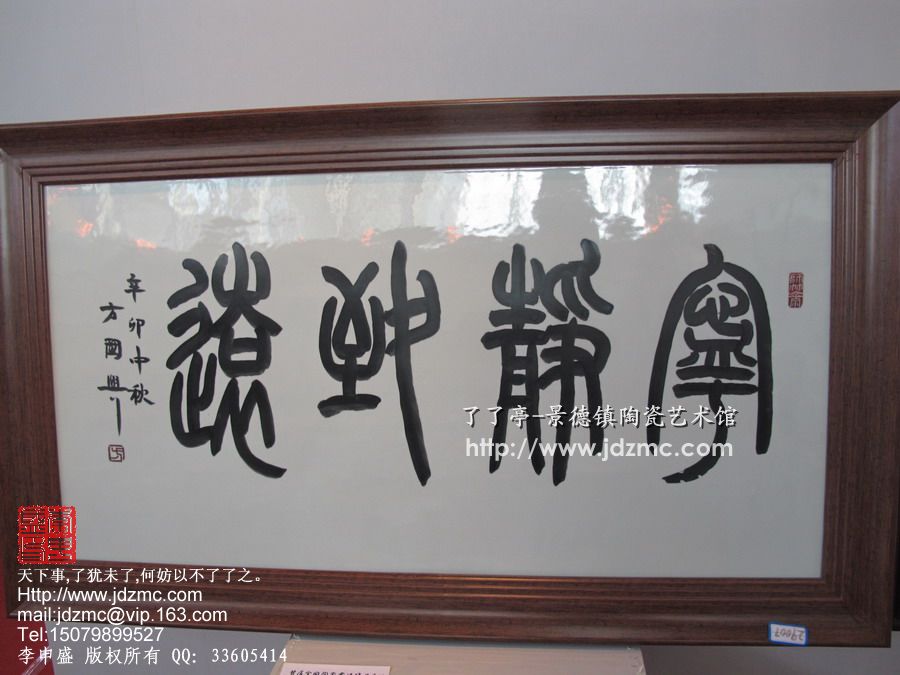 寧靜致遠
辛卯中秋
方國興
了了亭-景德镇陶瓷艺术馆
http://www.jdzmc.com
天下事,了犹未了,何妨以不了了之。
Http://www.jdzmc.com
mail:jdzmc@vip.163.com
Tel:15079899527
李申盛 版权所有 QQ: 33605414
29007